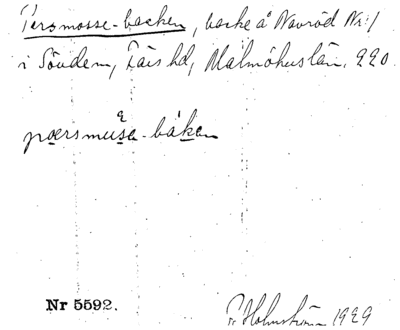 Persmosse-backen, backe å Navröd Nr: 1
i Sövdem, Färs hd, Malmöhus län. 220.
pærsmuse-bakен
Nr 5592.
F. Holmström 1929